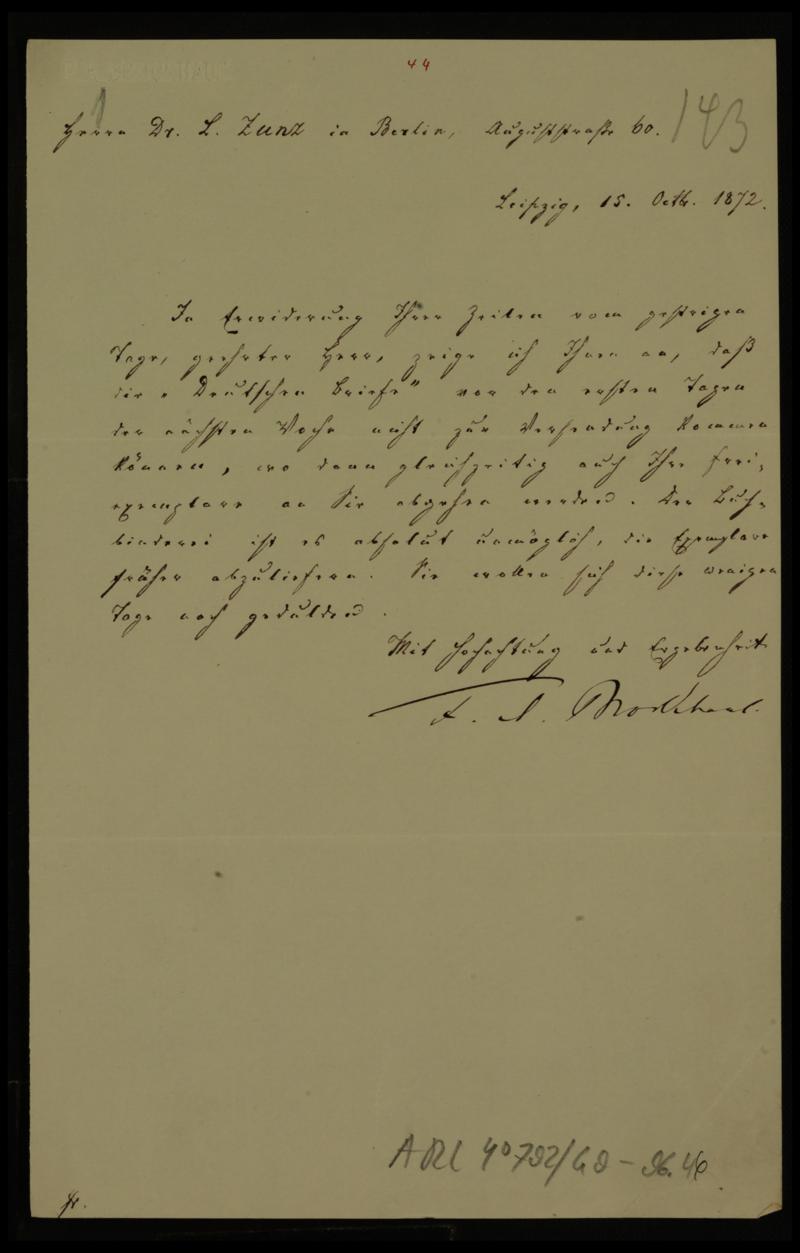 44
Herrn Dr. L. Zunz in Berlin, Auguststraße 60.
143
Leipzig, 15. Octb. 1872.
In Erwiderung Ihrer Zeilen vom gestrigen
Tage, geehrter Herr, zeige ich Ihnen an, daß
die „Deutschen Briefe" vor den ersten Tagen
der nächsten Woche nicht zur Versendung kommen
können, wo dann gleichzeitig auch Ihre Frei-
exemplare an Sie abgehen werden. Der Buch-
binderei ist es absolut unmöglich, die Exemplare
früher abzuliefern. Sie wollen sich diese wenigen
Tage noch gedulden.
Mit Hochachtung und Ergebenheit
F. A. Brockhaus.
ARC 4° 792/G8-96.46